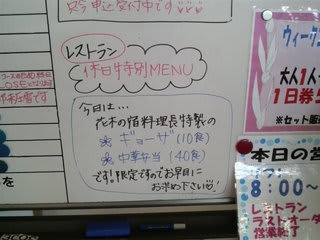 申込受付中です♡♡♡
レストラン
休日特別MENU
今日は…
花木の宿料理長特製の
ギョーザ（10食）
中華弁当（40食）
です。限定ですのでお早目に
お求め下さい♡!
LOSEとなり
ウィーク
大人1人
1日券5
※セット販
本日の営
8:00～
レストラン
ラストオーダ
営業終了